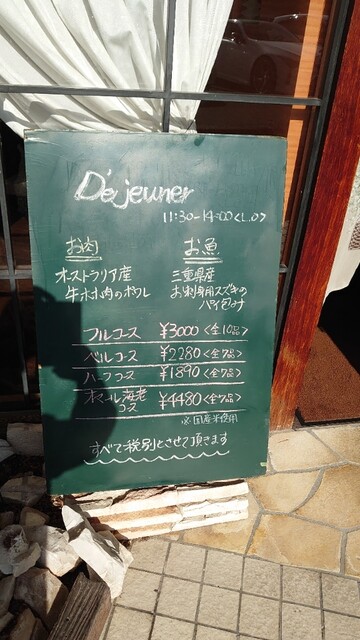 Déjeuner
11:30-14:00<L.O>
お肉
オーストラリア産
牛ホホ肉のポワレ
お魚
三重県産
お刺身用スズキの
パイ包み
フルコース ¥3000<全10品>
ベルコース ¥2280<全7品>
ハーフコース ¥1890<全7品>
オマール海老
コース ¥4480<全7品>
※国産米使用
すべて税別とさせて頂きます